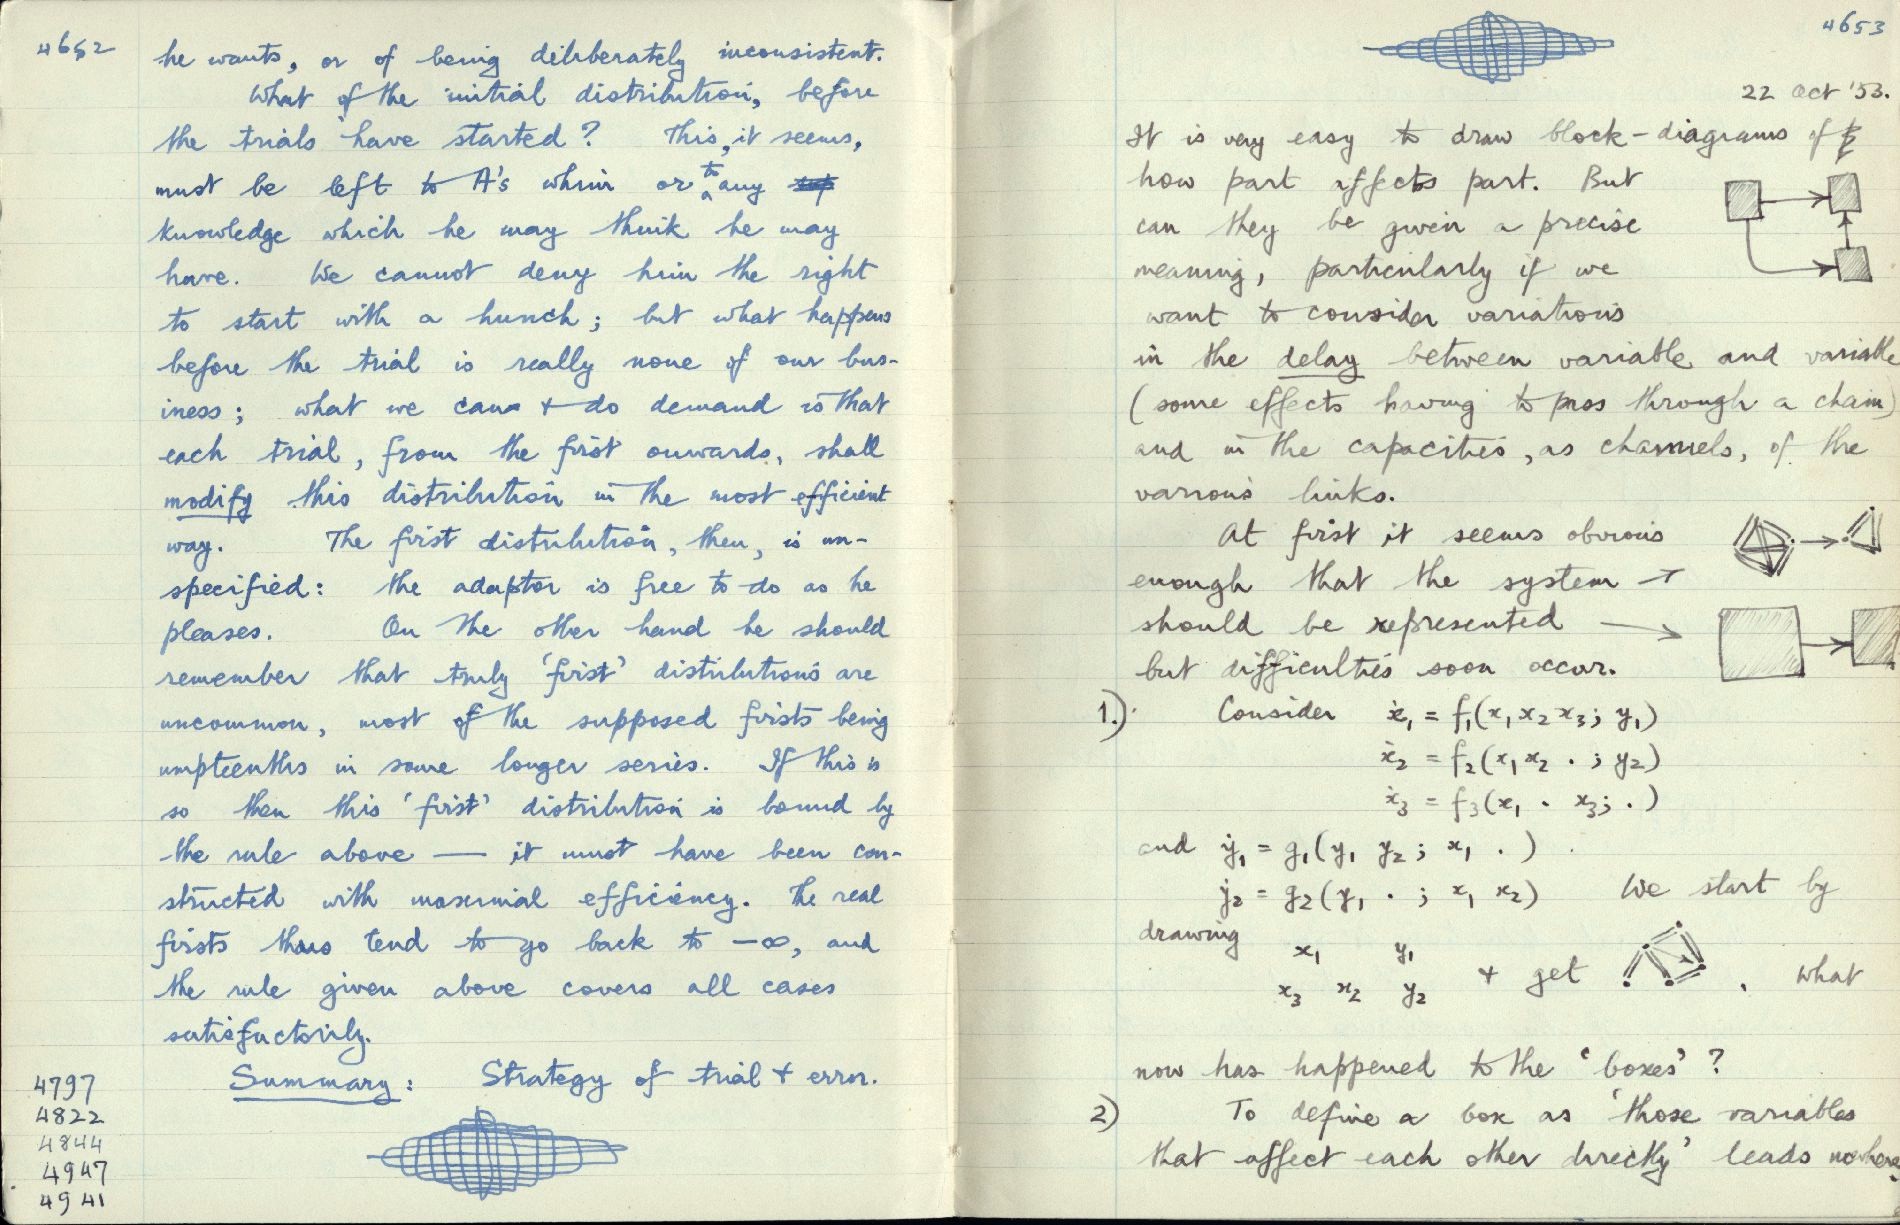 4652
he wants, or of being deliberately inconsistent.
What of the initial distribution, before
the trials have started? This, it seems,
must be left to A's whim or to any
knowledge which he may think he may
have. We cannot deny him the right
to start with a hunch; but what happens
before the trial is really none of our bus-
iness; what we can & do demand is that
each trial, from the first onwards, shall
modify this distribution in the most efficient
way. The first distribution, then, is un-
specified: the adaptor is free to do as he
pleases. On the other hand he should
remember that truly 'first' distributions are
uncommon, most of the supposed firsts being
umpteenths in some longer series. If this is
so then this 'first' distribution is bound by
the rule above — it must have been con-
structed with maximal efficiency. The real
firsts thus tend to go back to -∞, and
the rule given above covers all cases
satisfactorily.
Summary: Strategy of trial & error.
4797
4822
4844
4947
4941
4653
22 Oct '53.
It is very easy to draw block-diagrams of
how part affects part. But
can they be given a precise
meaning, particularly if we
want to consider variations
in the delay between variable and variable
(some effects having to pass through a chain)
and in the capacities, as channels, of the
various links.
At first it seems obvious
enough that the system →
should be represented →
but difficulties soon occur.
1.) Consider ẋ₁ = f₁(x₁ x₂ x₃; y₁)
ẋ₂ = f₂(x₁ x₂ · ; y₂)
ẋ₃ = f₃(x₁ · x₃; ·)
and ẏ₁ = g₁(y₁ y₂; x₁ ·)
ẏ₂ = g₂(y₁ · ; x₁ x₂) We start by
drawing
x₁ y₁
x₃ x₂ y₂ & get , what
now has happened to the 'boxes'?
2) To define a box as 'those variables
that affect each other directly' leads nowhere.